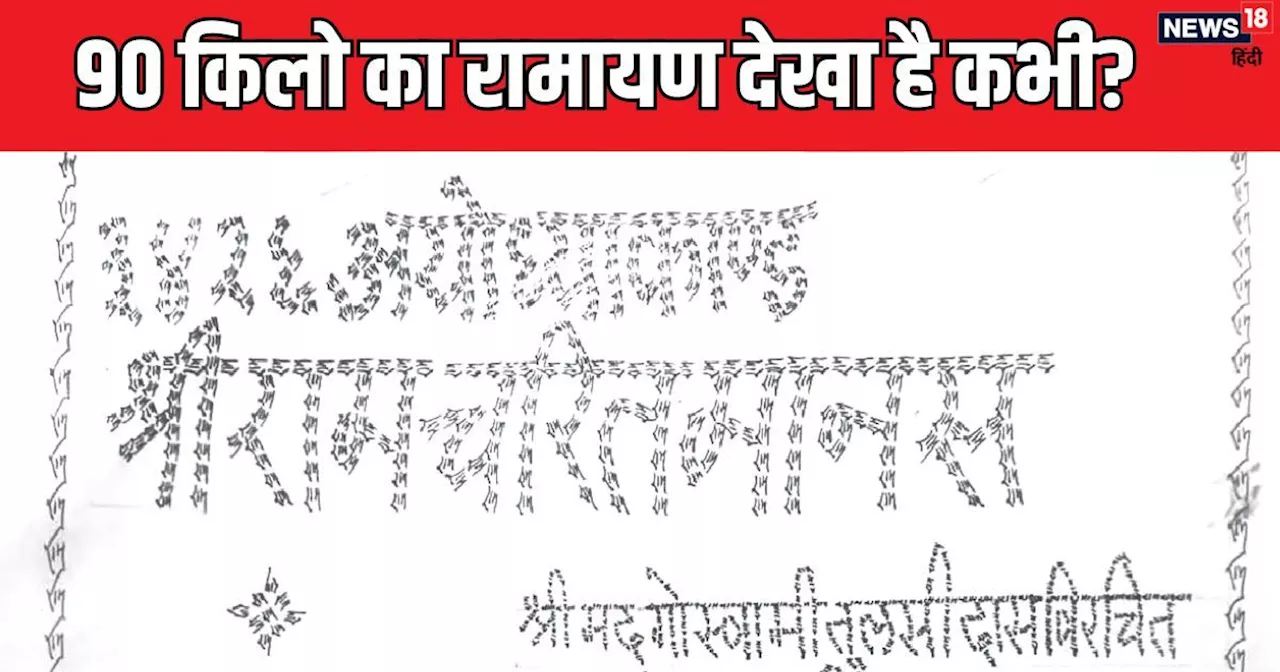 90 किलो का रामायण देखा है कभी?
NEWS 18
हिंदी
१४२६ अयोध्याकाण्ड
श्रीरामचरितमानस
श्रीमद्गोस्वामीतुलसीदासविरचित